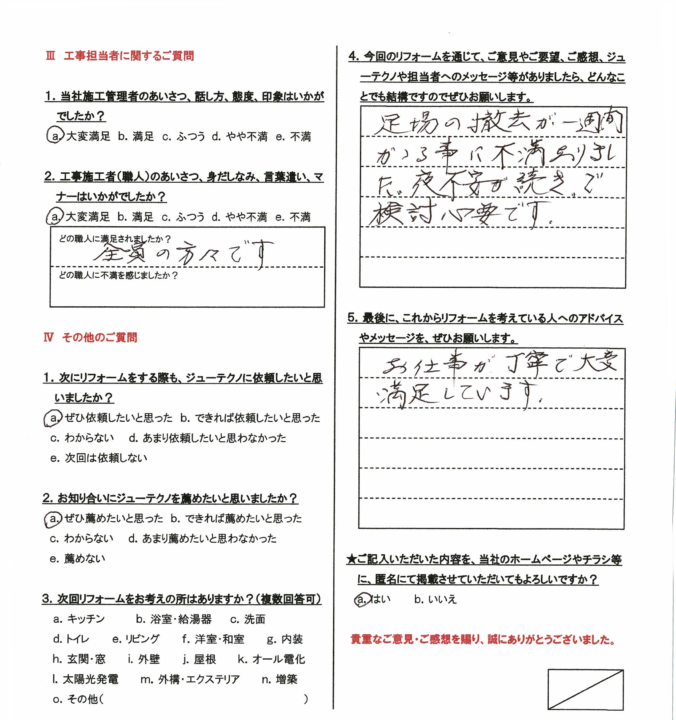 Ⅲ 工事担当者に関するご質問
1. 当社施工管理者のあいさつ、話し方、態度、印象はいかが
でしたか?
a. 大変満足 b. 満足 c. ふつう d. やや不満 e. 不満
2. 工事施工者(職人)のあいさつ、身だしなみ、言葉遣い、マ
ナーはいかがでしたか?
a. 大変満足 b. 満足 c. ふつう d. やや不満 e. 不満
どの職人に満足されましたか?
全員の方々です
どの職人に不満を感じましたか?
Ⅳ その他のご質問
1. 次にリフォームをする際も、ジューテクノに依頼したいと思
いましたか?
a. ぜひ依頼したいと思った b. できれば依頼したいと思った
c. わからない d. あまり依頼したいと思わなかった
e. 次回は依頼しない
2. お知り合いにジューテクノを薦めたいと思いましたか?
a. ぜひ薦めたいと思った b. できれば薦めたいと思った
c. わからない d. あまり薦めたいと思わなかった
e. 薦めない
3. 次回リフォームをお考えの所はありますか?(複数回答可)
a. キッチン b. 浴室・給湯器 c. 洗面
d. トイレ e. リビング f. 洋室・和室 g. 内装
h. 玄関・窓 i. 外壁 j. 屋根 k. オール電化
l. 太陽光発電 m. 外構・エクステリア n. 増築
o. その他( )
4. 今回のリフォームを通じて、ご意見やご要望、ご感想、ジュ
ーテクノや担当者へのメッセージ等がありましたら、どんなこ
とでも結構ですのでぜひお願いします。
足場の撤去が一週間
かかる事に不満ありまし
た。夜不安が続き。で
検討必要です。
5. 最後に、これからリフォームを考えている人へのアドバイス
やメッセージを、ぜひお願いします。
お仕事が丁寧で大変
満足しています。
★ご記入いただいた内容を、当社のホームページやチラシ等
に、匿名にて掲載させていただいてもよろしいですか?
a. はい b. いいえ
貴重なご意見・ご感想を賜り、誠にありがとうございました。